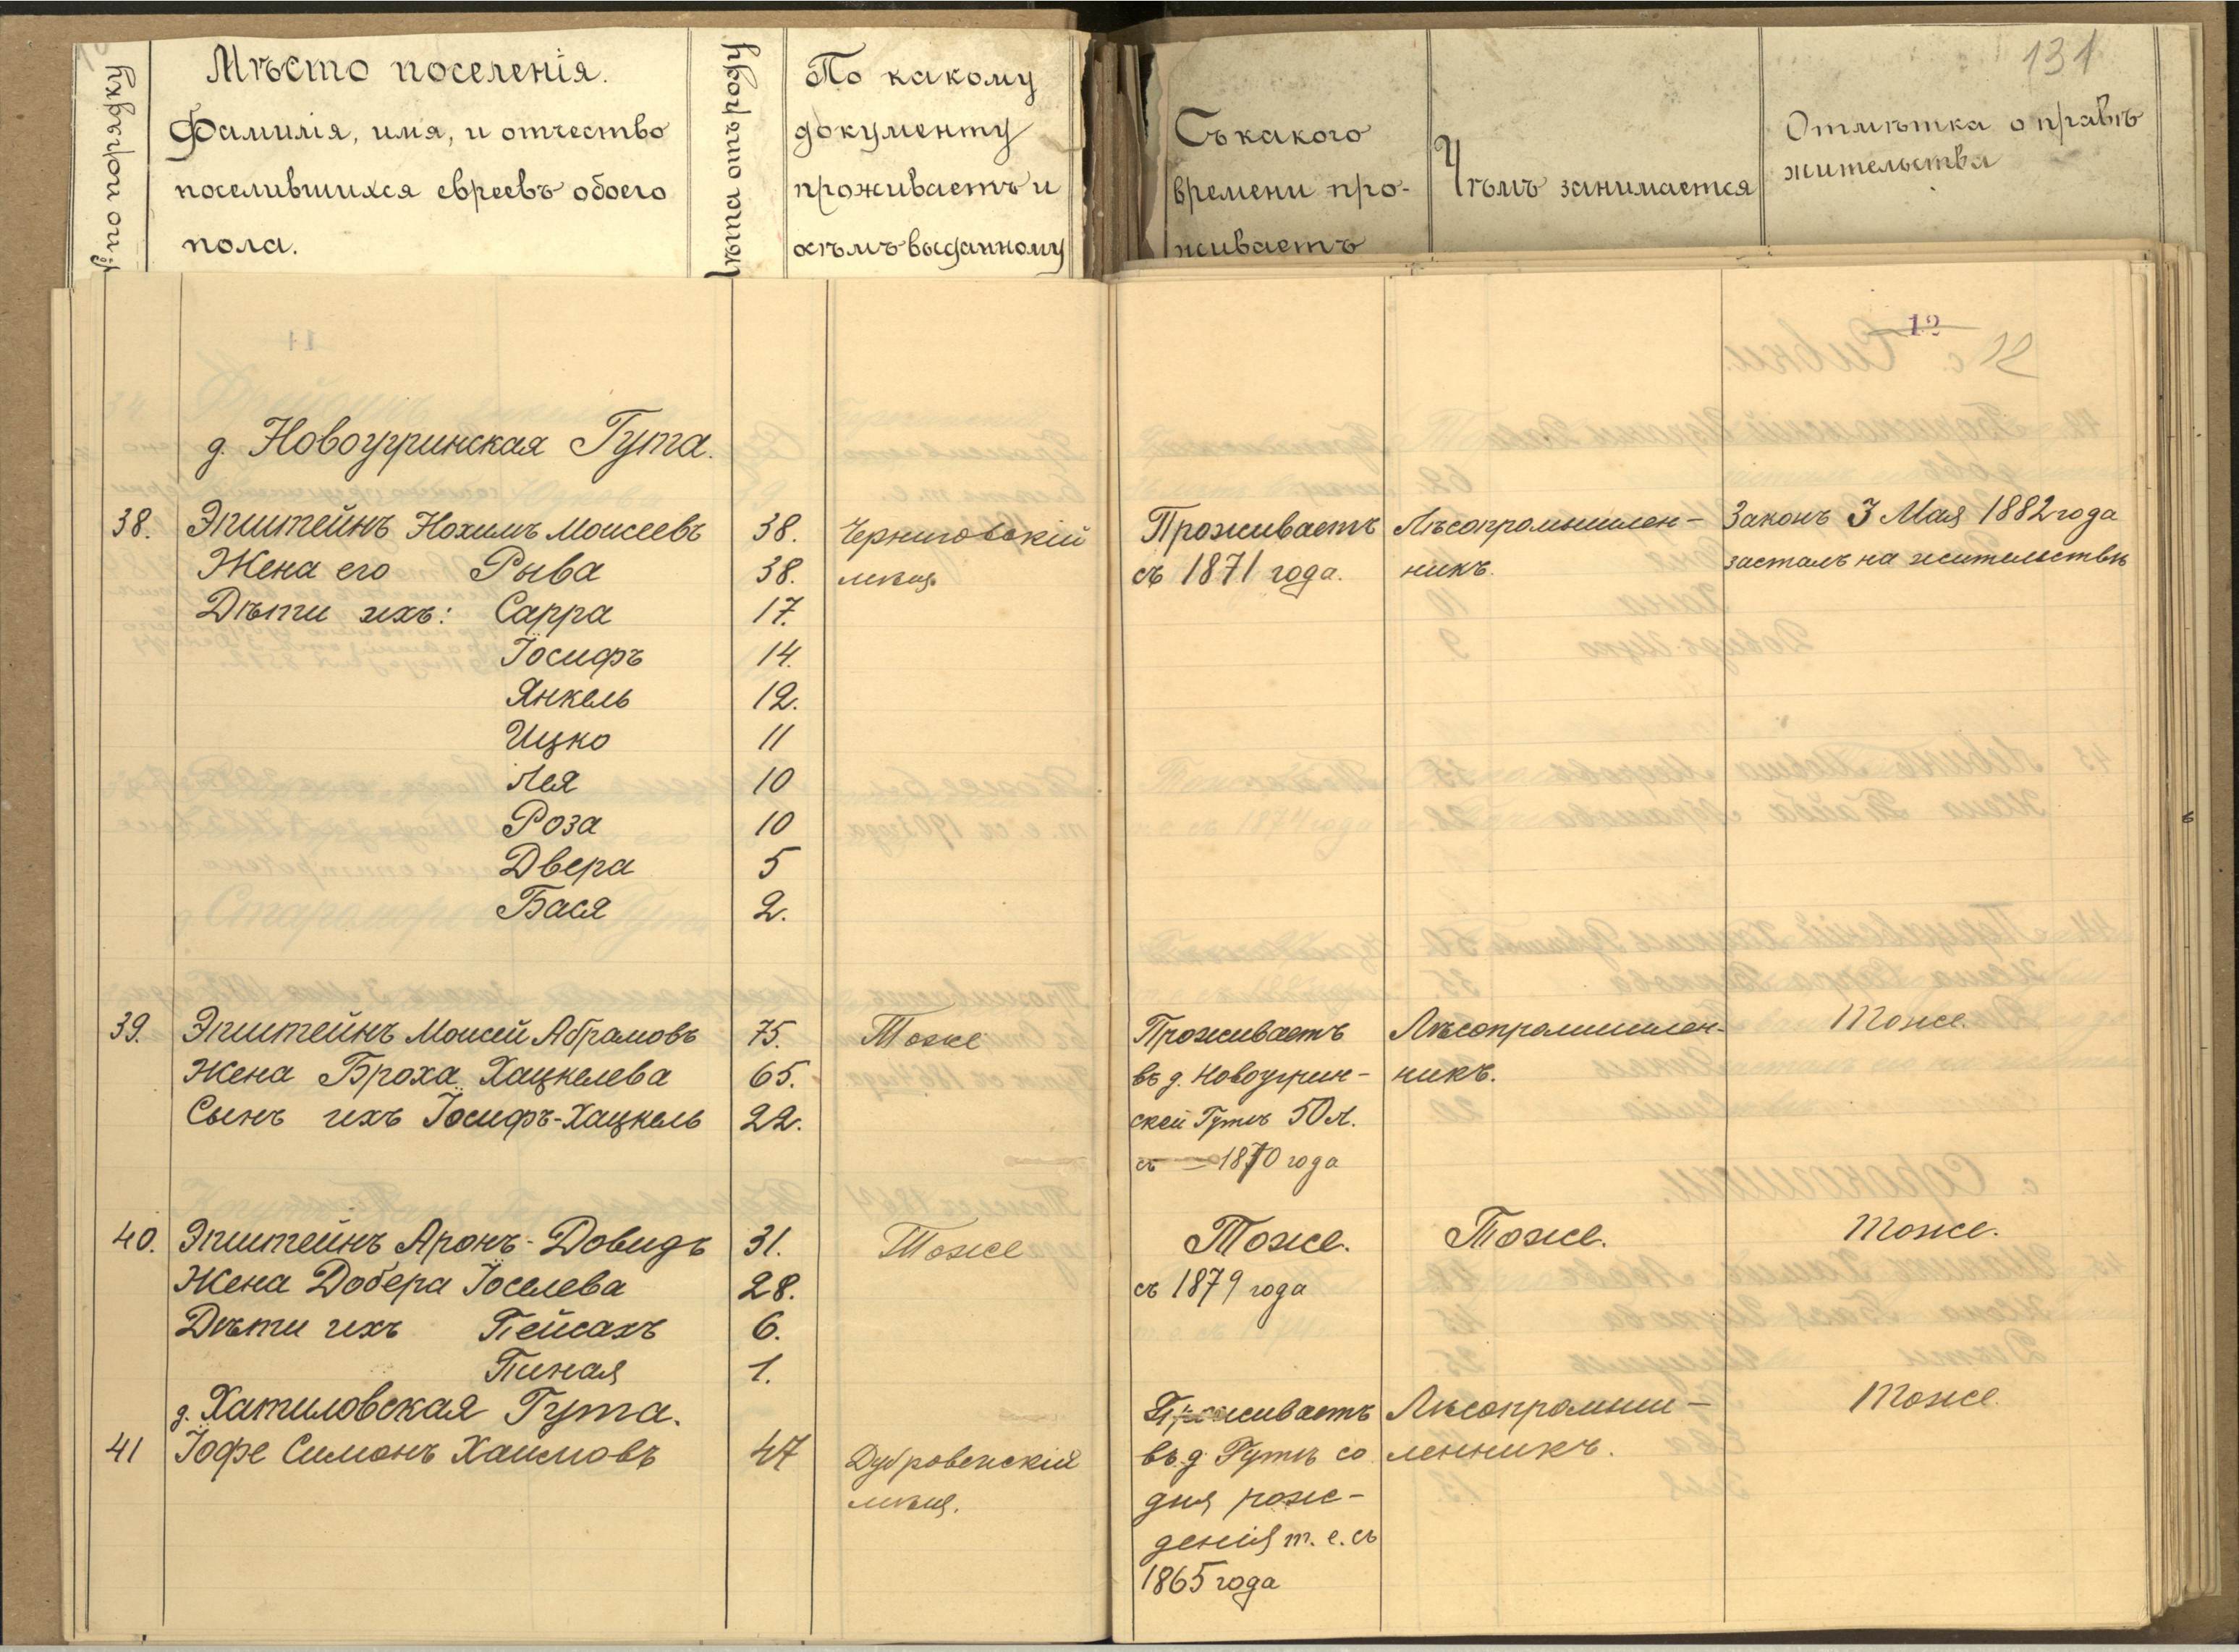 № по порядку
Мѣсто поселенія.
Фамилія, имя, и отчество
поселившихся евреевъ обоего
пола.
Лѣта отъ роду
По какому
документу
проживаетъ и
кѣмъ выданному
Съ какого
времени про-
живаетъ
Чѣмъ занимается
Отмѣтка о правѣ
жительства
131
12
12
д. Новоугринская Гута.
38. Эпштейнъ Нохимъ Моисеевъ 38. Черниговскій Проживаетъ Лѣсопромышлен- Законъ 3 Мая 1882 года
Жена его Рыва 38. мѣщ. съ 1871 года. никъ. засталъ на жительствѣ
Дѣти ихъ: Сарра 17.
Іосифъ 14.
Янкель 12.
Ицко 11
Лея 10
Роза 10
Двера 5
Бася 2.
39. Эпштейнъ Моисей Абрамовъ 75. Тоже Проживаетъ Лѣсопромышлен- Тоже.
Жена Броха Хацкелева 65. въ д. Новоугрин- никъ.
Сынъ ихъ Іосифъ-Хацкель 22. ской Гутѣ 50 л.
съ 1870 года
40. Эпштейнъ Аронъ-Довидъ 31. Тоже Тоже. Тоже. Тоже.
Жена Добера Іоселева 28. съ 1879 года
Дѣти ихъ Пейсахъ 6.
Пиная 1.
д. Хатиловская Гута. Проживаетъ Лѣсопромыш- Тоже.
41 Іофе Симонъ Хаимовъ 47 Дубровенскій въ д Гутѣ со ленникъ.
мѣщ. дня рож-
денія т. е. съ
1865 года